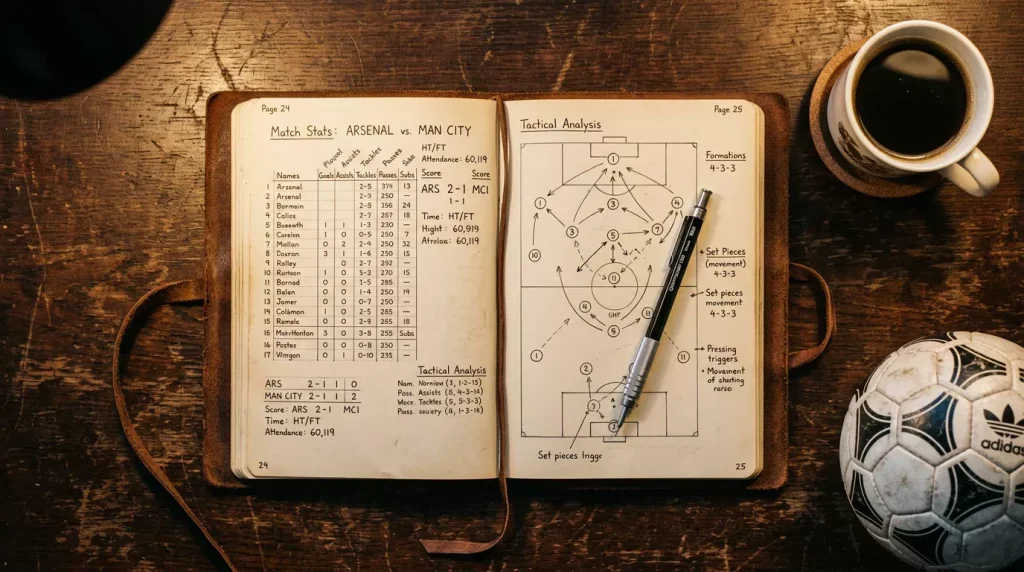 Page 24
Match Stats: ARSENAL vs. MAN CITY
Assists Tackles Passes
Names Goals Assists Tackles Passes Subs
1 Arsenal 2-5 374 13
2 Arsenal 2-3 250 —
3 Bormain 2-5 356 24
4 Colics 2-7 267 18
5 Boeewth 1 1 1-3 230 —
6 Careivn 1 0 0-5 250 7
7 Mallan 0 2 2-4 250 32
8 Dasron 3 1 1-6 250 15
9 Rolley 0 2-7 292 —
10 Rortson 1 0 5-2 270 15
11 Bornad 0 0 1-5 285 —
12 Balan 0 0 1-4 250 19
13 Jomer 0 0 0-7 250 —
14 Colámon 1 0 2-5 265 —
15 Romale 0 0 2-9 265 18
16 3 0 3-8 255 Subs
16 Postes 0 0 0-8 250 —
17 Vimgen 0 1 0-10 293 —
HT/FT
Attendance: 60,119
Score Score
ARS 2-1 MCI
1-1
Time: HT/FT
Hight: 60,919
60,119
ARS 2-1 1 0
MAN CITY 2-1 1 2
Score: ARS 2-1 MCI
Time: HT/FT
Attendance: 60,119
Tactical Analysis
Nam. (3, 1-2-15)
Pass. Assists (8, 4-3-18)
Tackles (5, 5-3-3)
Pass. (8, 1-3-18)
24
Page 25
Tactical Analysis
1
1 3 4
3 5 7
10
11
4
GHP
5
1 11
2
7
3
Formations
4-3-3
Set Pieces
(movement)
4-3-3
Set pieces
movement
4-3-3
Pressing
triggers
• Movement
of
Set pieces Inggr
25
adidas